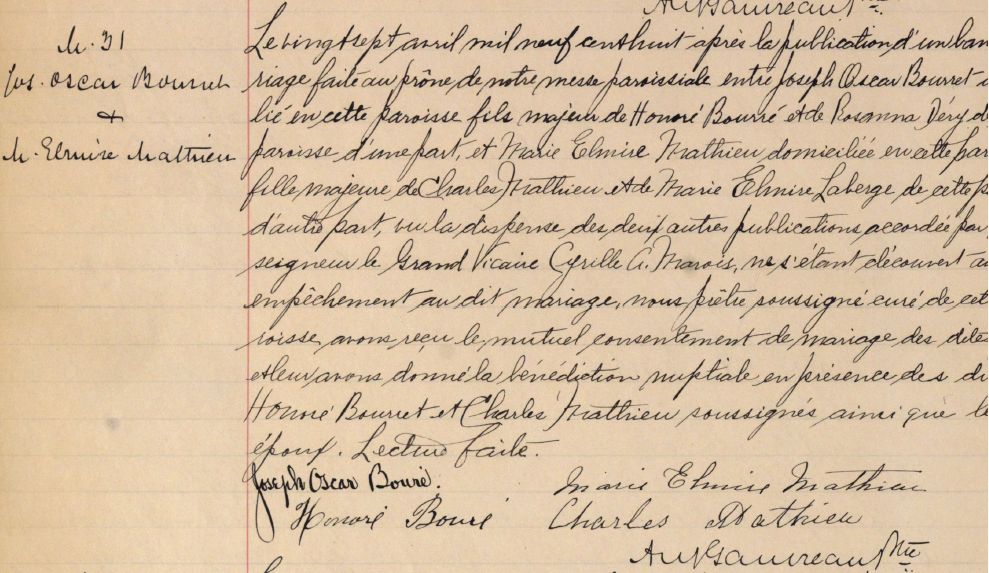 M. 31
Jos. Oscar Bourret
&
M. Elmire Mathieu
Le vingt sept avril mil neuf cent huit après la publication d'un ban
riage faite au prône de notre messe paroissiale entre Joseph Oscar Bourret
lié en cette paroisse fils majeur de Honoré Bourré et de Rosanna Déry de
paroisse d'une part, et Marie Elmire Mathieu domiciliée en cette par
fille majeure de Charles Mathieu et de Marie Elmire Laberge de cette p
d'autre part, vu la dispense des deux autres publications accordée par
seigneur le Grand Vicaire Cyrille A. Marois, ne s'étant découvert au
empêchement au dit mariage, nous prêtre soussigné curé de cet
roisse avons reçu le mutuel consentement de mariage des dites
et leur avons donné la bénédiction nuptiale en présence des di
Honoré Bourret et Charles Mathieu soussignés ainsi que le
époux. Lecture faite.
Joseph Oscar Bouré. Marie Elmire Mathieu
Honoré Bouré Charles Mathieu
Gauvreau Ptre